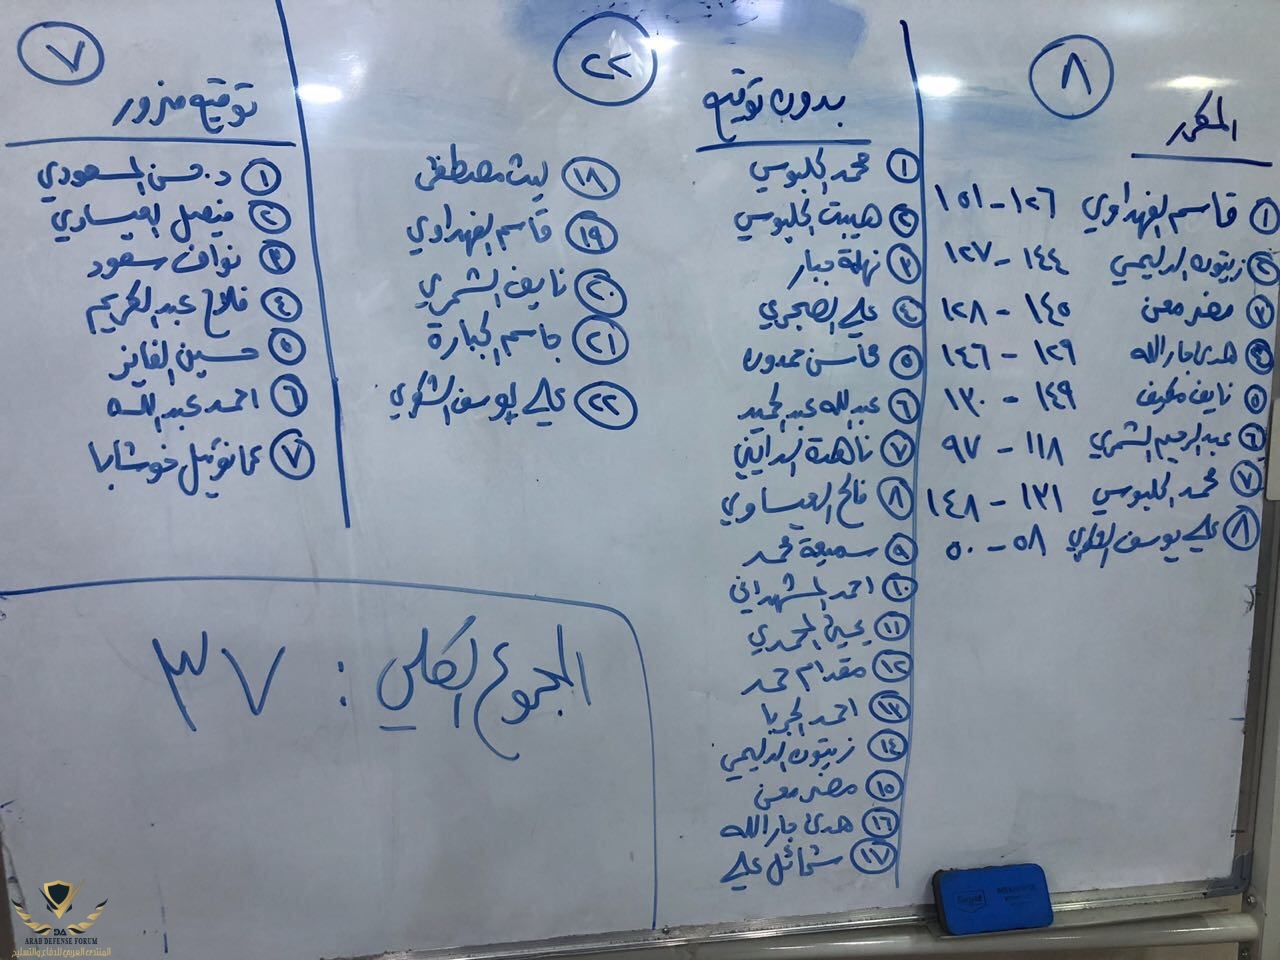 ٨
المكرر
١ قاسم الفهداوي ١٢٦ - ١٥١
٢ زيتون الدليمي ١٤٤ - ١٢٧
٣ مضر معن ١٤٥ - ١٢٨
٤ هدى جار الله ١٢٩ - ١٤٦
٥ نايف مكيف ١٤٩ - ١٣٠
٦ عبد الرحيم الشمري ١١٨ - ٩٧
٧ محمد الحلبوسي ١٣١ - ١٤٨
٨ علي يوسف ٥٨ - ٥٠
٢٢
بدون توقيع
١ محمد الحلبوسي
٢ هيبت الحلبوسي
٣ نهلة جبار
٤ علي الصجري
٥ محاسن حمدون
٦ عبد الله عبد الحميد
٧ ناهدة الدايني
٨ فالح العيساوي
٩ سميعة محمد
١٠ احمد المشهداني
١١ يحيى المحمدي
١٢ مقدام محمد
١٣ احمد الجربا
١٤ زيتون الدليمي
١٥ مضر معن
١٦ هدى جار الله
١٧ شمائل علي
١٨ ليث مصطفى
١٩ قاسم الفهداوي
٢٠ نايف الشمري
٢١ جاسم الجبارة
٢٢ علي يوسف الشكري
٧
توقيع مزور
١ د. حسن المسعودي
٢ فيصل العيساوي
٣ نواف سعود
٤ فلاح عبد الكريم
٥ حسين الفايز
٦ احمد عبد الله
٧ عمانوئيل خوشابا
المجموع الكلي : ٣٧
DA
ARAB DEFENSE FORUM
المنتدى العربي للدفاع والتسليح